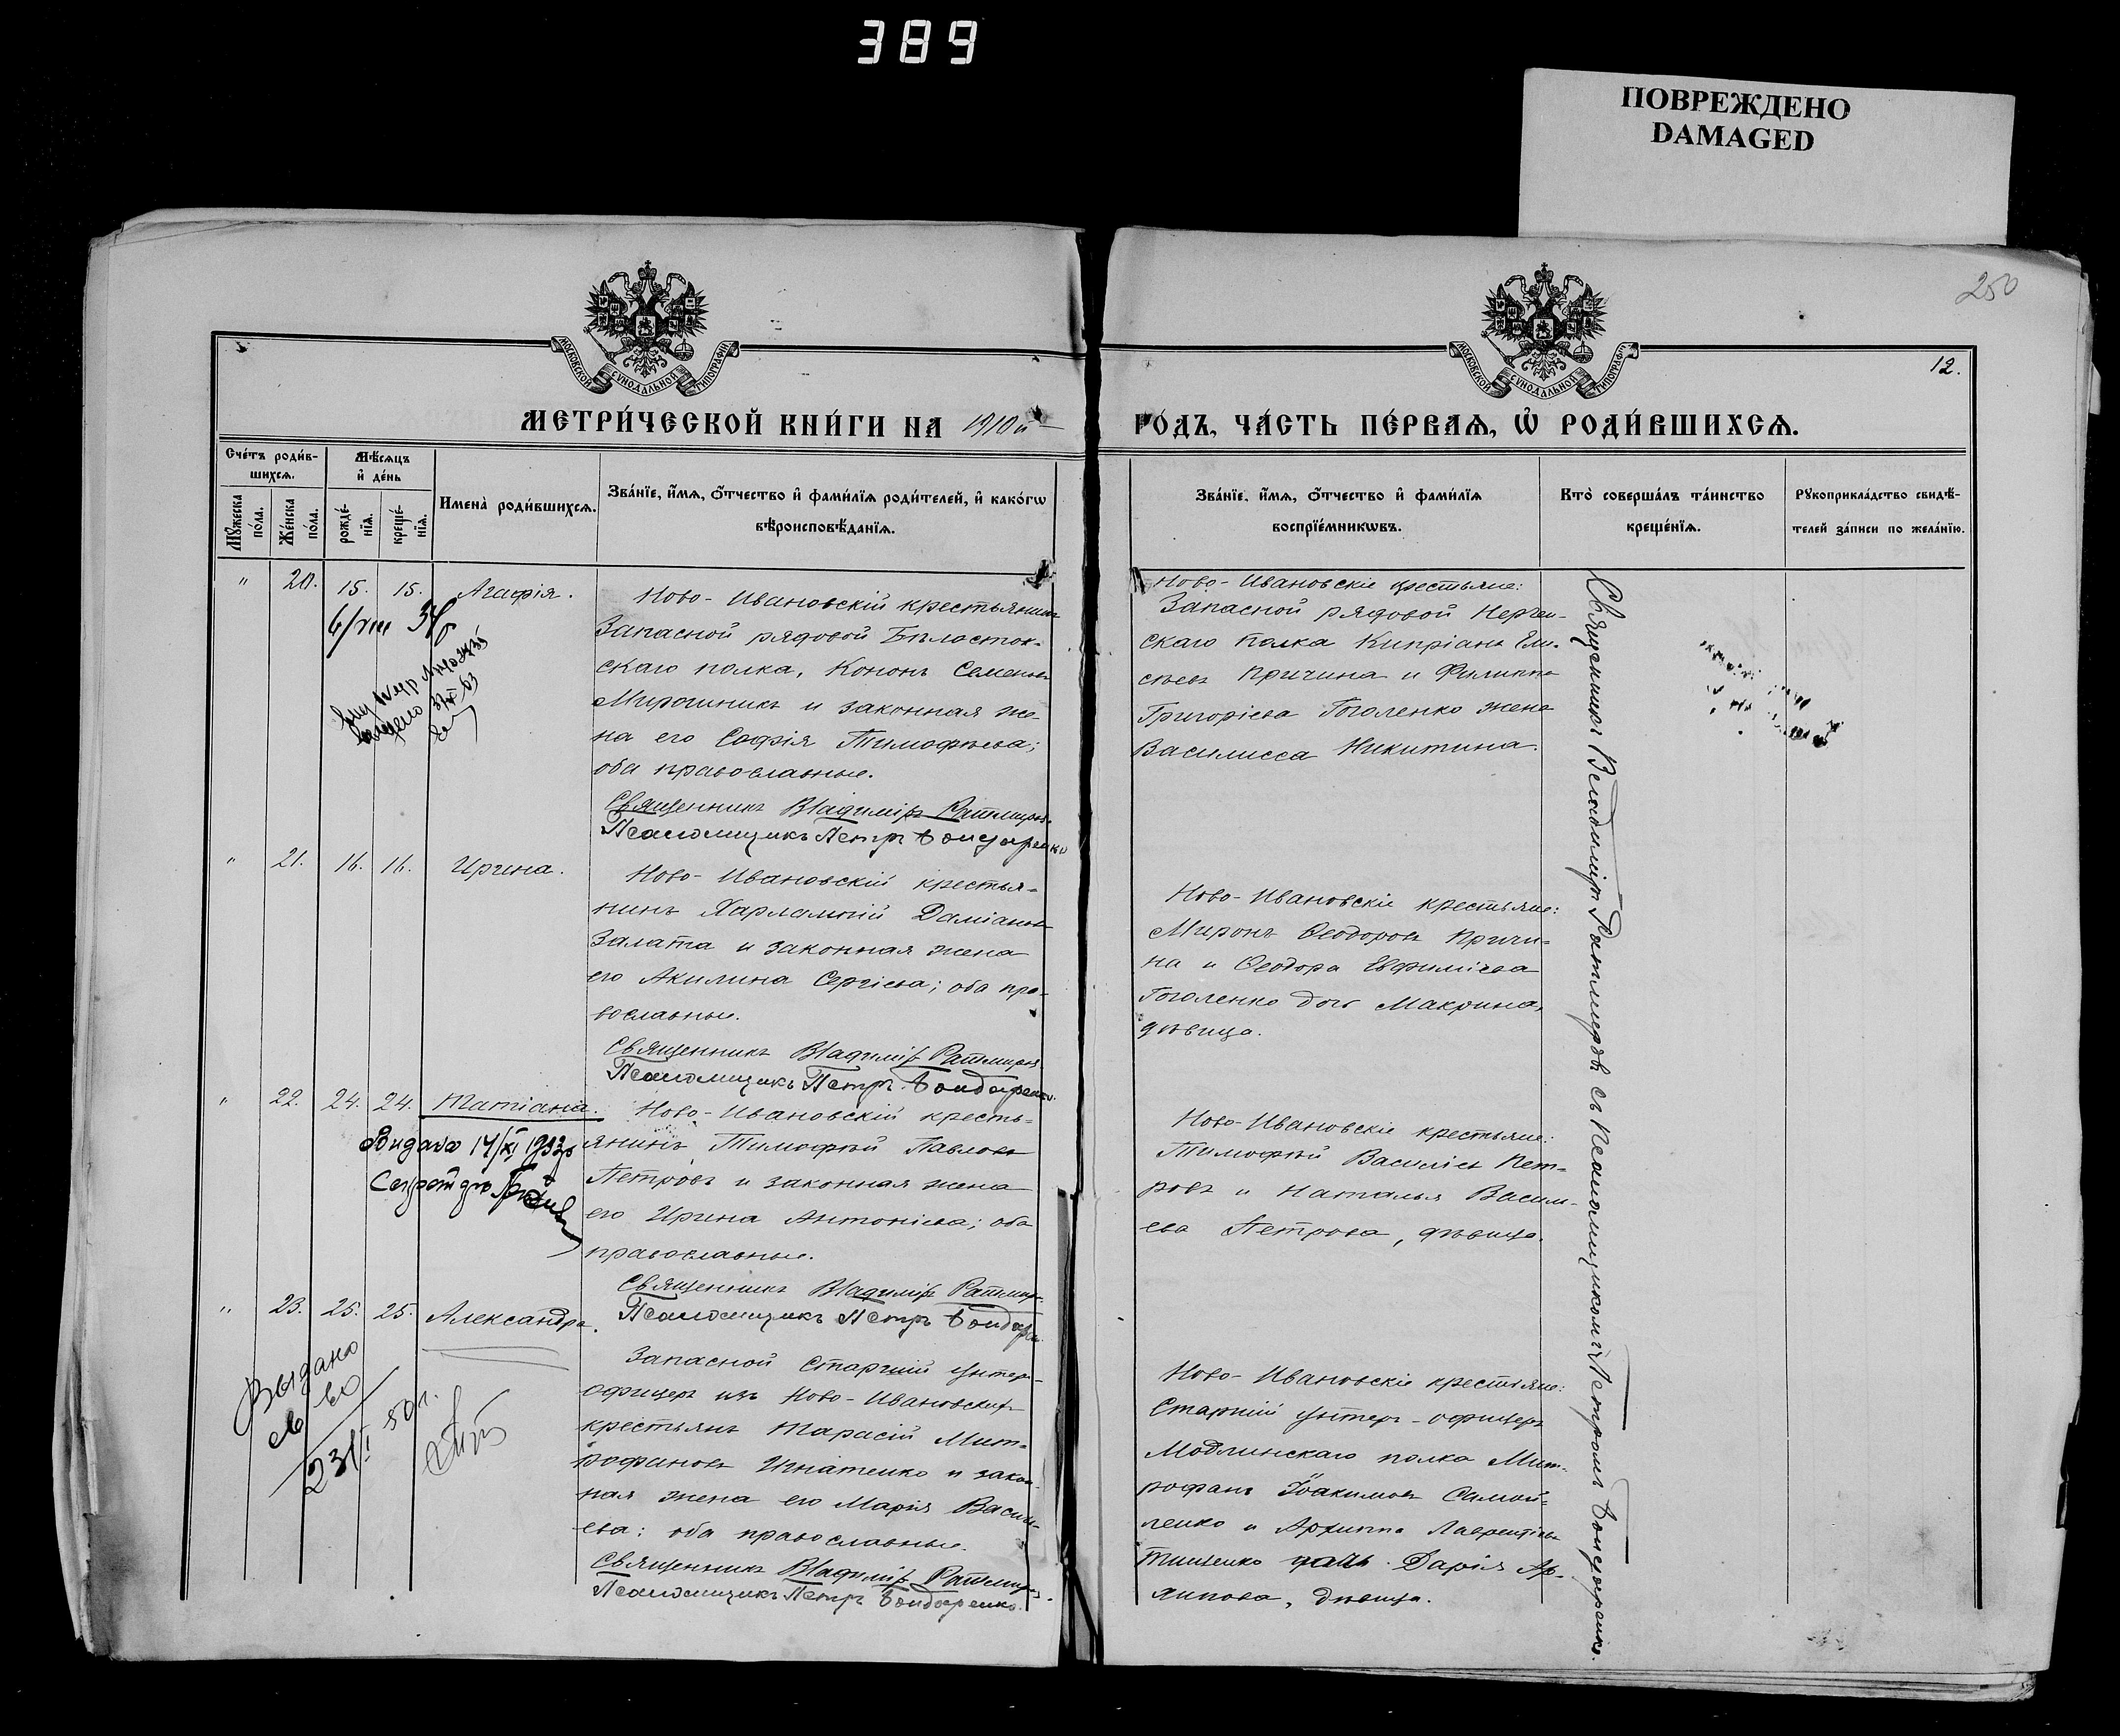 389
ПОВРЕЖДЕНО
DAMAGED
250
12.
МОСКОВСКОЙ СѴНОДАЛЬНОЙ ТИПОГРАФІИ
МОСКОВСКОЙ СѴНОДАЛЬНОЙ ТИПОГРАФІИ
МЕТРИ́ЧЕСКОЙ КНИ́ГИ НА 1910й
ГО́ДЪ, ЧА́СТЬ ПЕ́РВАѦ, Ѡ҆ РОДИ́ВШИХСѦ.
Сче́тъ роди́в-
шихсѧ.
Мꙋжеска по́ла.
Же́нска по́ла.
Мѣ́сѧцъ
и҆ де́нь
рожде́-
нїѧ.
креще́-
нїѧ.
Имена̀ роди́вшихсѧ.
Зва́нїе, и҆́мѧ, ѻ҆́тчество и҆ фами́лїѧ роди́телей, и҆ како́гѡ
вѣроисповѣ́данїѧ.
Зва́нїе, и҆́мѧ, ѻ҆́тчество и҆ фами́лїѧ
воспрїе́мникѡвъ.
Кто̀ соверша́лъ та́инство
креще́нїѧ.
Рꙋкоприкла́дство свидѣ́-
телей за́писи по жела́нїю.
" 20. 15. 15. Агафія.
6/VIII 34
Ново-Ивановскій крестьянинъ
Запасной рядовой Бѣлосток-
скаго полка, Кононъ Семеновъ
Мирошникъ и законная же-
на его Софія Тимофѣева;
оба православные.
Священникъ Владиміръ Ратмировъ
Псаломщикъ Петръ Бондаренко
Ново-Ивановскіе крестьяне:
Запасной рядовой Нерчин-
скаго полка Кипріанъ Ели-
сѣевъ Причина и Филиппа
Григоріева Гоголенко жена
Василисса Никитина.
" 21. 16. 16. Ирина.
Ново-Ивановскій крестья-
нинъ Харлампій Даміановъ
Залата и законная жена
его Акилина Сергіева; оба пра-
вославные.
Священникъ Владиміръ Ратмировъ
Псаломщикъ Петръ Бондаренко.
Ново-Ивановскіе крестьяне:
Миронъ Ѳеодоровъ Причи-
на и Ѳеодора Евфиміева
Гоголенко дочь Макрина,
дѣвица.
" 22. 24. 24. Татіана.
Видано 14/XI 1933р
Ново-Ивановскій кресть-
янинъ Тимофѣй Павловъ
Петровъ и законная жена
его Ирина Антоніева; оба
православные.
Священникъ Владиміръ Ратмир.
Псаломщикъ Петръ Бондарен.
Ново-Ивановскіе крестьяне:
Тимофѣй Василіевъ Пет-
ровъ и Наталья Василь-
ева Петрова, дѣвица.
" 23. 25. 25. Александра.
Выдано
св во
23/I 50 г.
Запасной Старшій унтер-
офицеръ изъ Ново-Ивановскихъ
крестьянъ Тарасій Мит-
рофановъ Игнатенко и закон-
ная жена его Марія Василь-
ева; оба православные.
Священникъ Владиміръ Ратмировъ.
Псаломщикъ Петръ Бондаренко.
Ново-Ивановскіе крестьяне:
Старшій унтеръ-офицеръ
Модлинскаго полка Мит-
рофанъ Іоакимовъ Самой-
ленко и Архиппа Лаврентіева
Тищенко дочь Дарія Ар-
хипова, дѣвица.
Священникъ Владиміръ Ратмировъ съ Псаломщикомъ Петромъ Бондаренко.